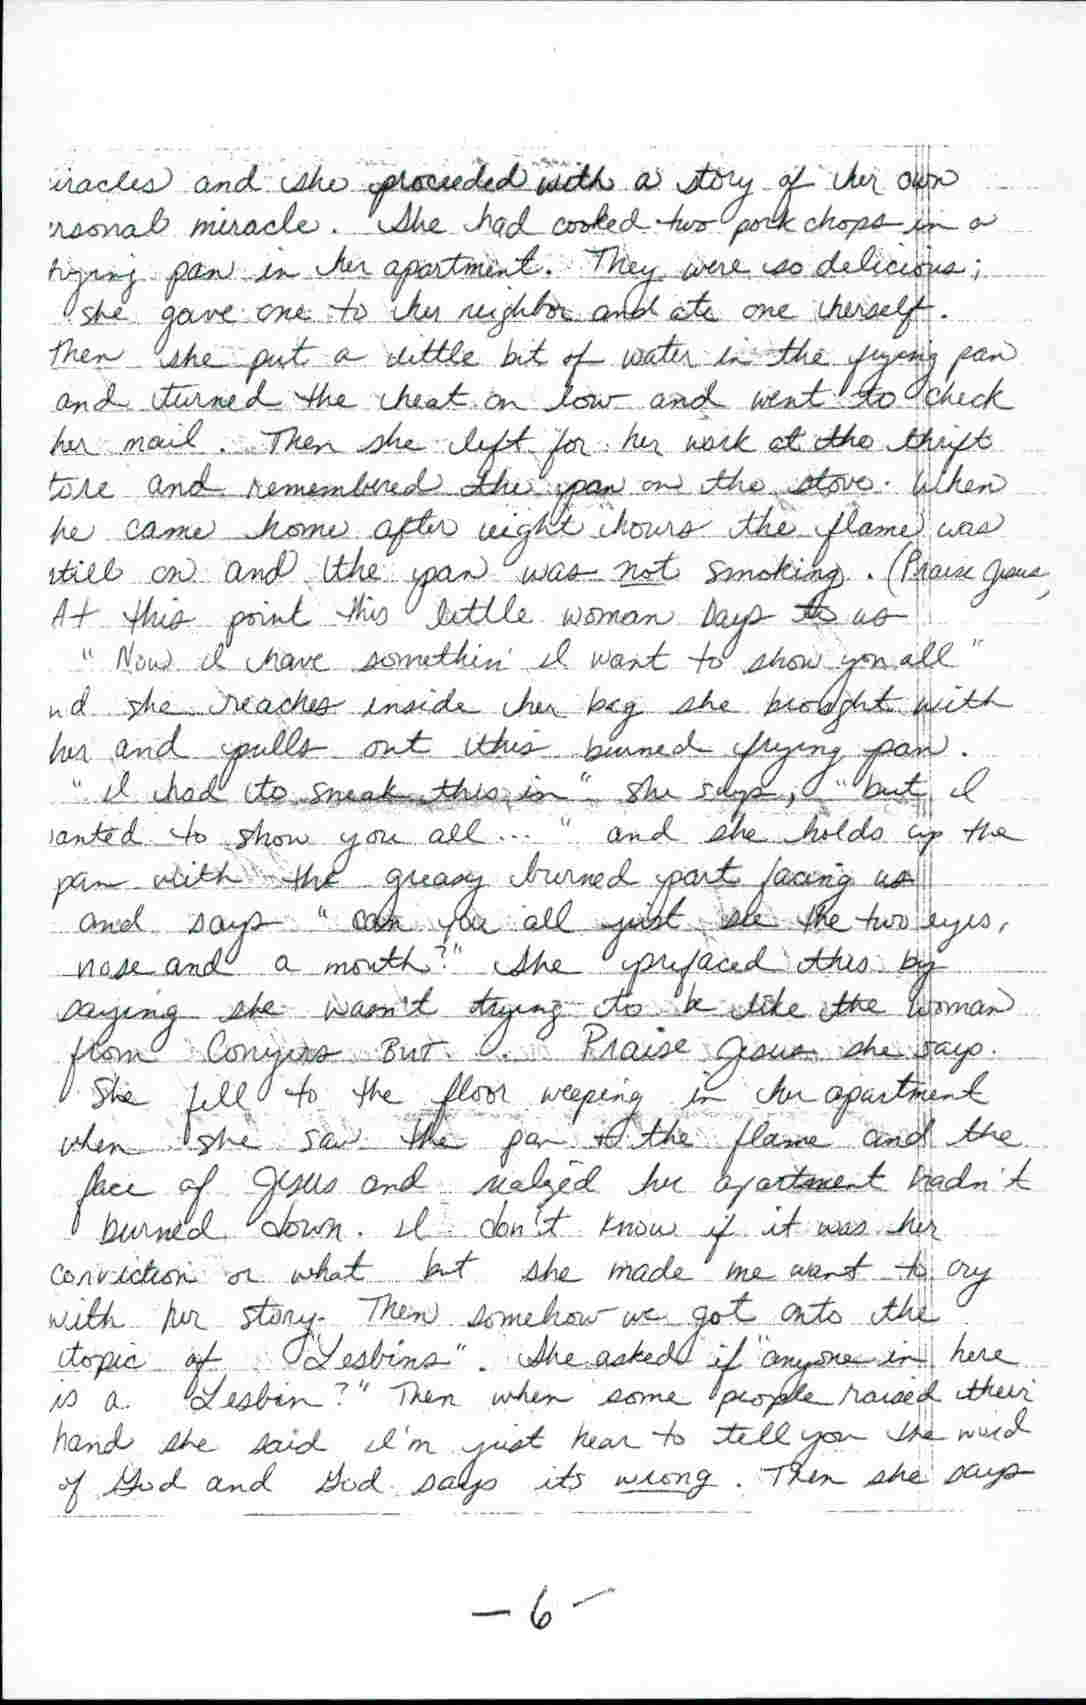 iracles and she proceeded with a story of her own
rsonal miracle. She had cooked two pork chops in a
frying pan in her apartment. They were so delicious;
she gave one to her neighbor and ate one herself.
Then she put a little bit of water in the frying pan
and turned the heat on low and went to check
her mail. Then she left for her work at the thrift
tore and remembered the pan on the stove. When
he came home after eight hours the flame was
still on and the pan was not smoking. (Praise Jesus,
At this point this little woman says to us
"Now I have somethin' I want to show you all"
nd she reaches inside her bag she brought with
her and pulls out this burned frying pan.
"I had to sneak this in" she says, "but I
anted to show you all..." and she holds up the
pan with the greasy burned part facing us
and says "can you all just see the two eyes,
nose and a mouth?" She prefaced this by
saying she wasn't trying to be like the woman
from Conyers But . . Praise Jesus she says.
She fell to the floor weeping in her apartment
when she saw the pan & the flame and the
face of Jesus and realized her apartment hadn't
burned down. I don't know if it was her
conviction or what but she made me want to cry
with her story. Then somehow we got onto the
topic of "Lesbins". She asked if "anyone in here
is a Lesbin?" Then when some people raised their
hand she said I'm just hear to tell you the word
of God and God says its wrong. Then she says
- 6 -